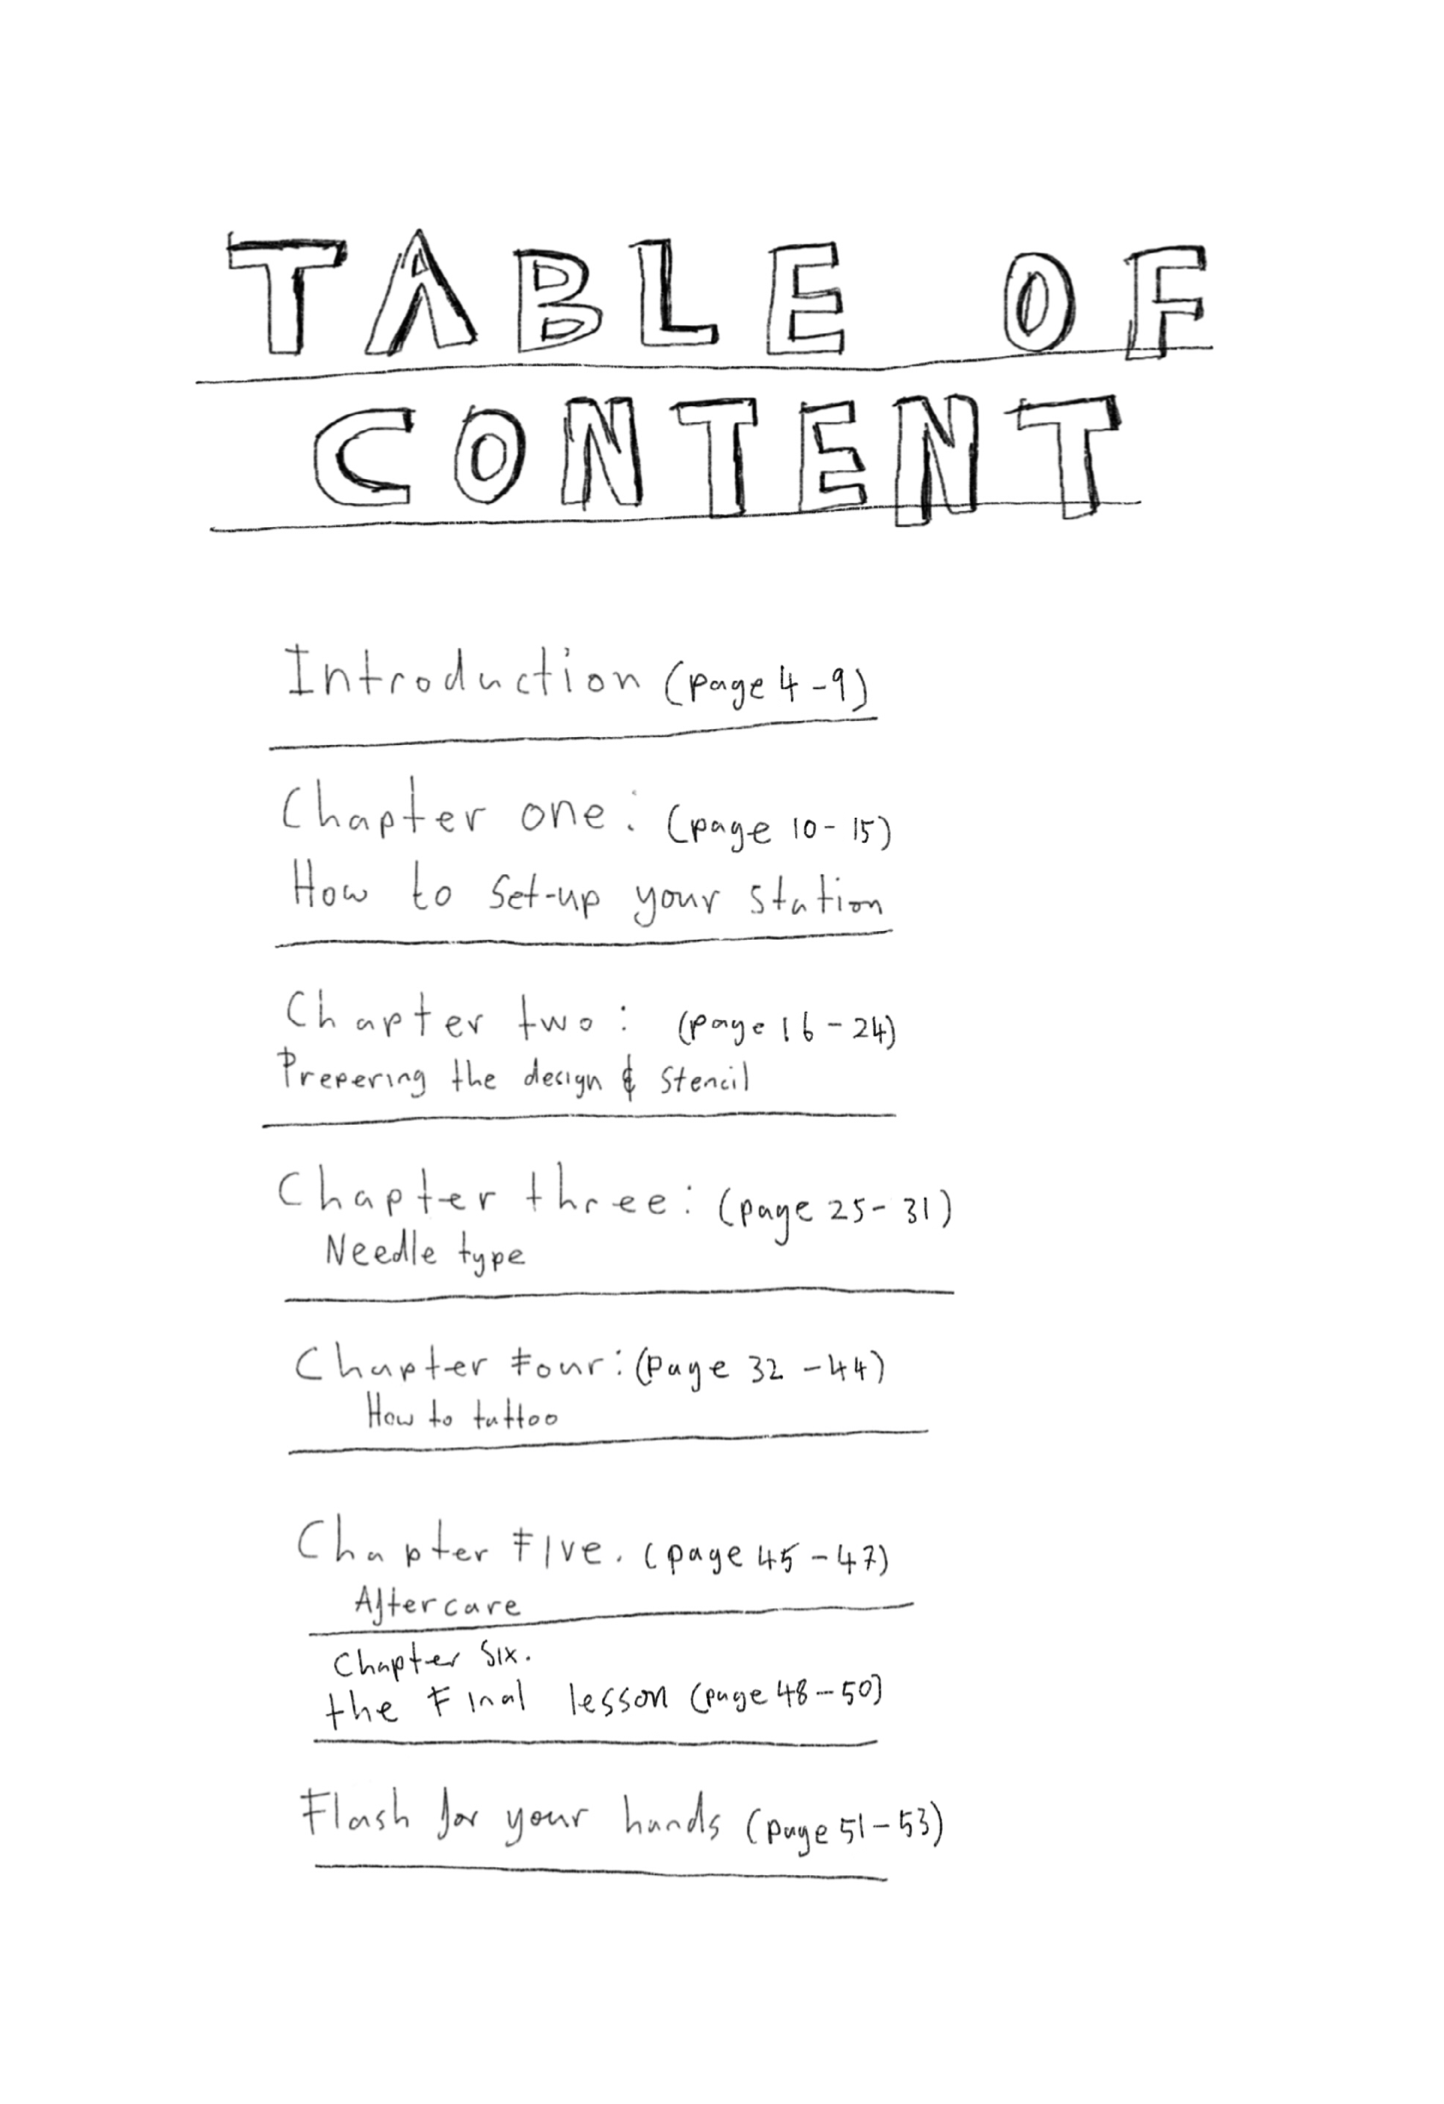 TABLE OF
CONTENT
Introduction (page 4-9)
Chapter one: (page 10-15)
How to set-up your station
Chapter two: (page 16-24)
Prepering the design & stencil
Chapter three: (page 25-31)
Needle type
Chapter four: (page 32-44)
How to tattoo
Chapter five. (page 45-47)
Aftercare
Chapter six.
the final lesson (page 48-50)
Flash for your hands (page 51-53)